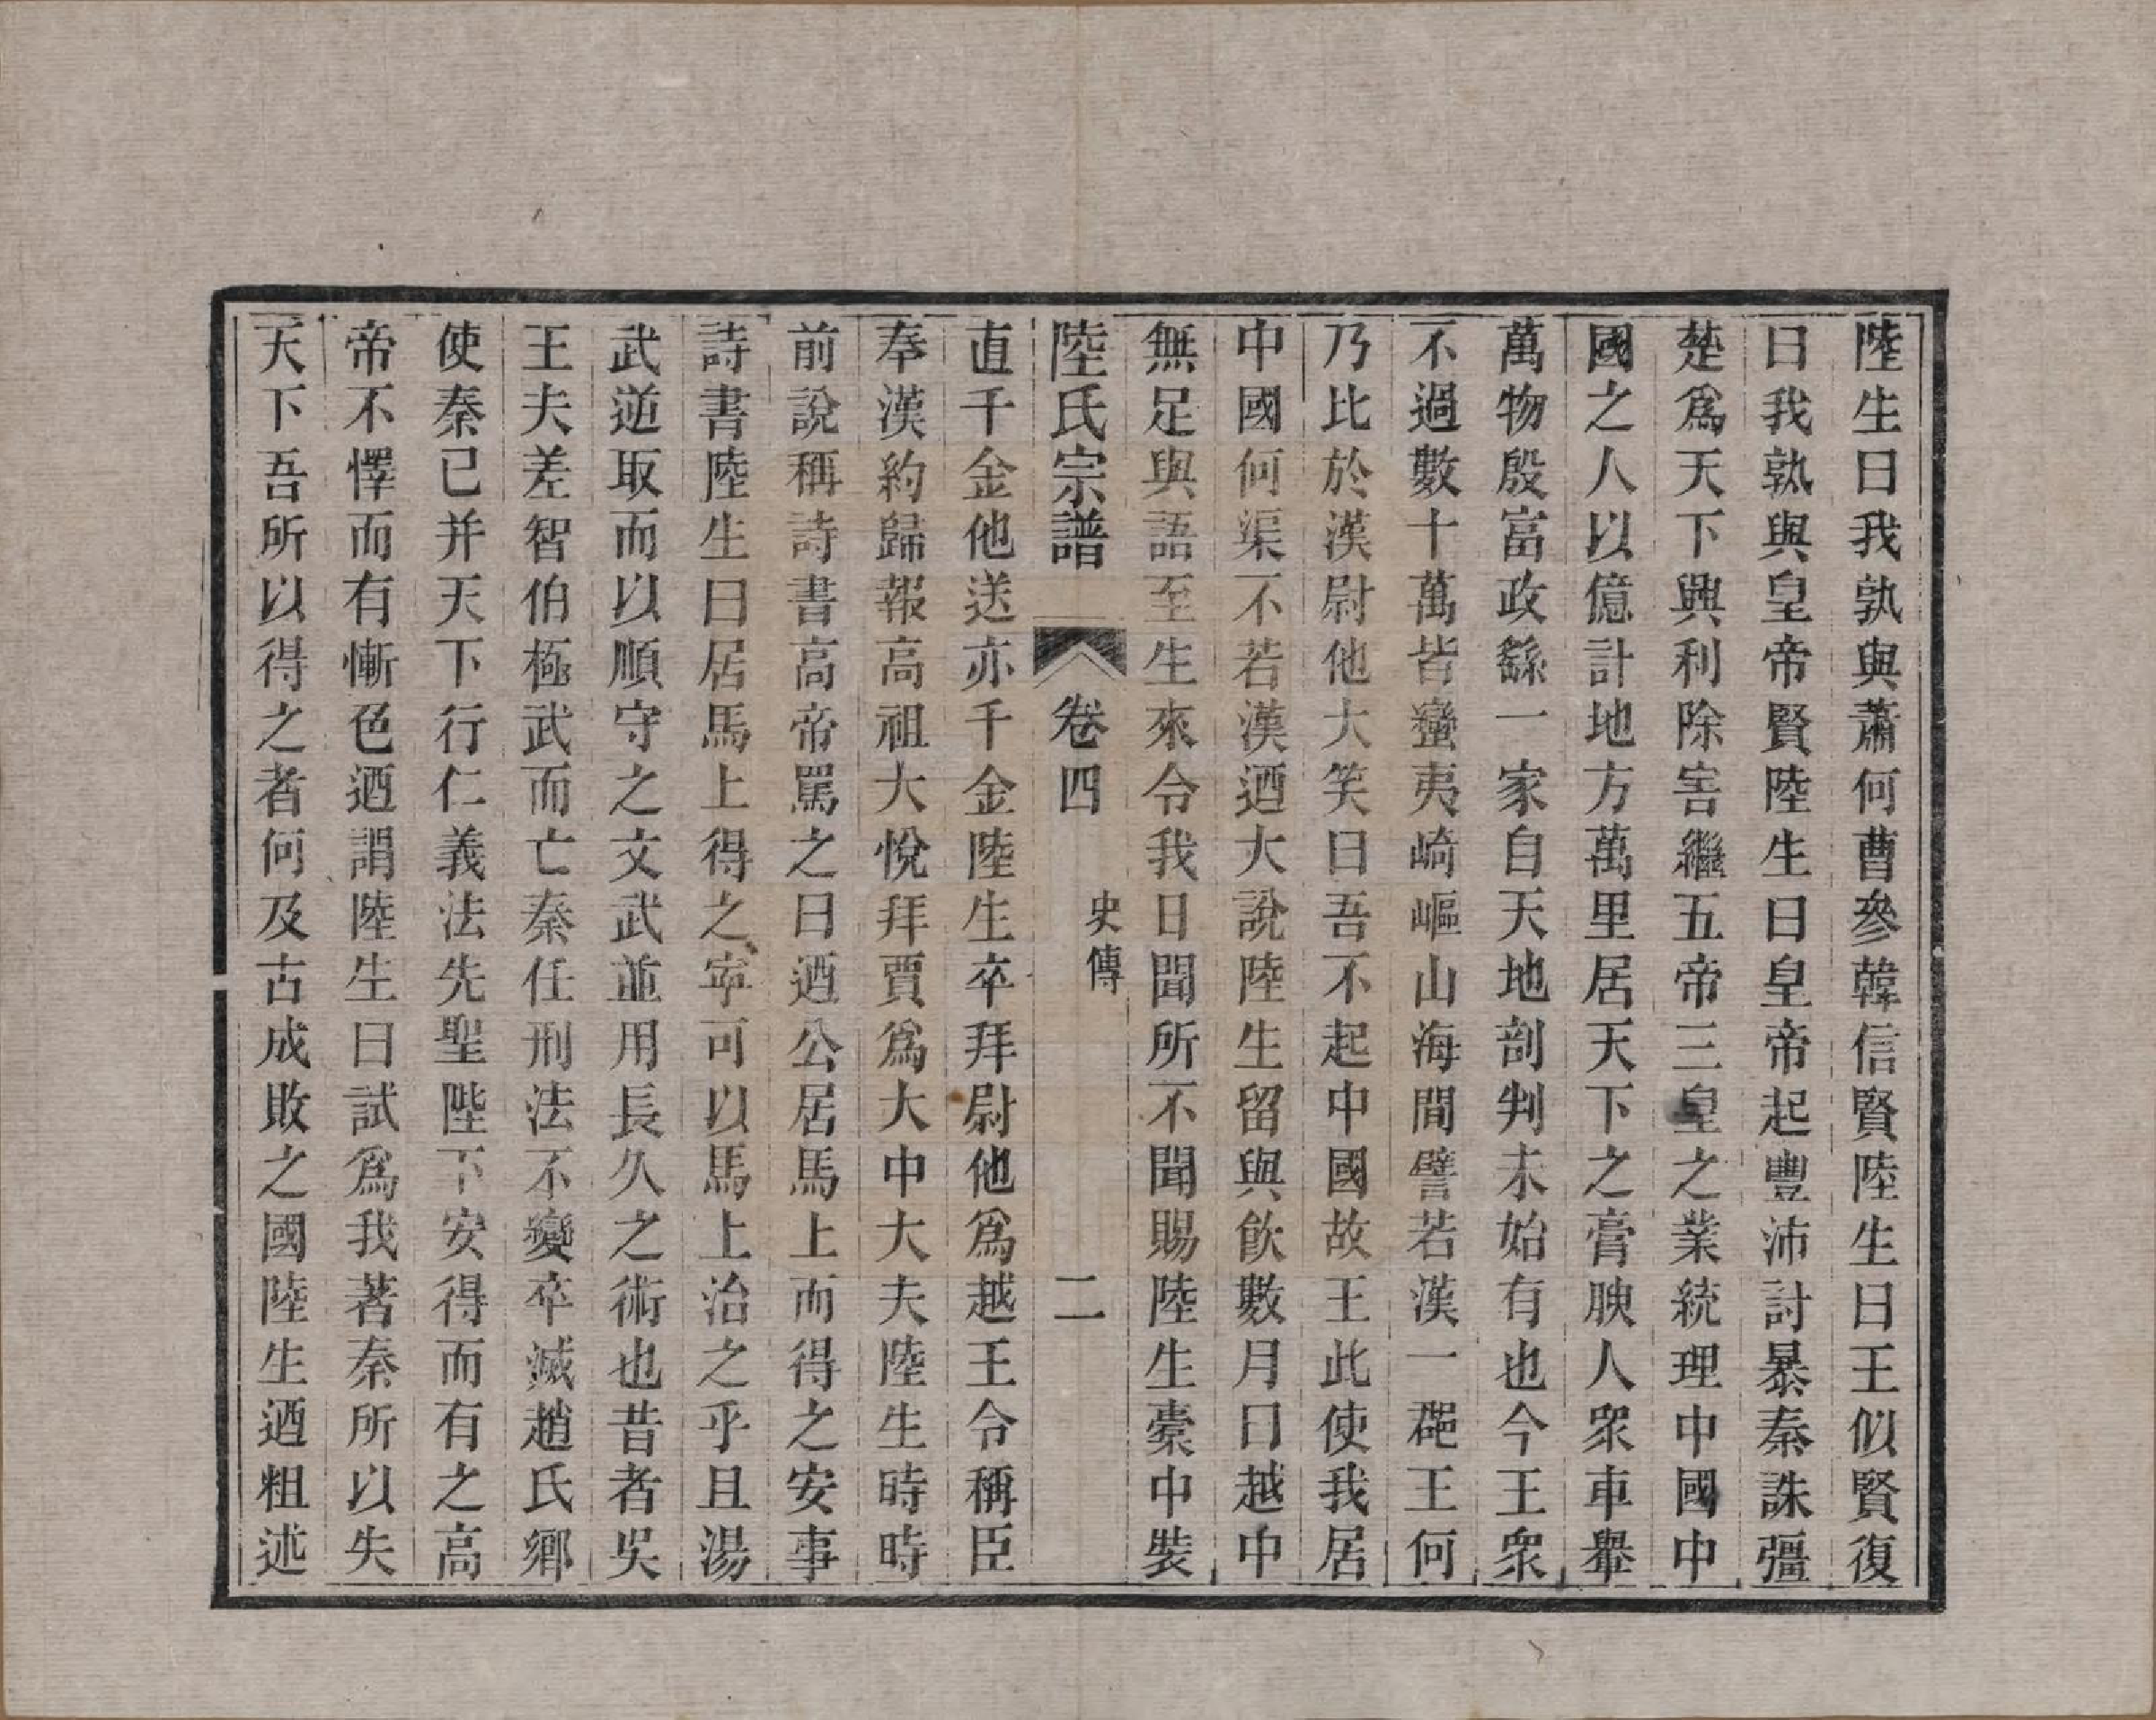 陸生曰我孰與蕭何曹參韓信賢陸生曰王似賢復
曰我孰與皇帝賢陸生曰皇帝起豐沛討暴秦誅彊
楚爲天下興利除害繼五帝三皇之業統理中國中
國之人以億計地方萬里居天下之膏腴人衆車轝
萬物殷富政繇一家自天地剖判未始有也今王衆
不過數十萬皆蠻夷崎嶇山海間譬若漢一郡王何
乃比於漢尉他大笑曰吾不起中國故王此使我居
中國何渠不若漢迺大說陸生留與飮數月曰越中
無足與語至生來令我日聞所不聞賜陸生橐中裝
陸氏宗譜
卷四
史傳
二
直千金他送亦千金陸生卒拜尉他爲越王令稱臣
奉漢約歸報高祖大悅拜賈爲大中大夫陸生時時
前說稱詩書高帝罵之曰迺公居馬上而得之安事
詩書陸生曰居馬上得之寜可以馬上治之乎且湯
武逆取而以順守之文武並用長久之術也昔者吳
王夫差智伯極武而亡秦任刑法不變卒滅趙氏鄉
使秦已并天下行仁義法先聖陛下安得而有之高
帝不懌而有慚色迺謂陸生曰試爲我著秦所以失
天下吾所以得之者何及古成敗之國陸生迺粗述